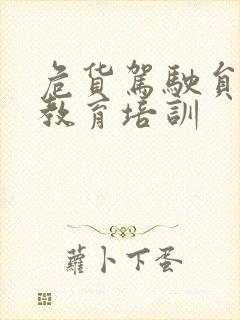 危货駕駛員
教育培訓
蘿卜下蛋